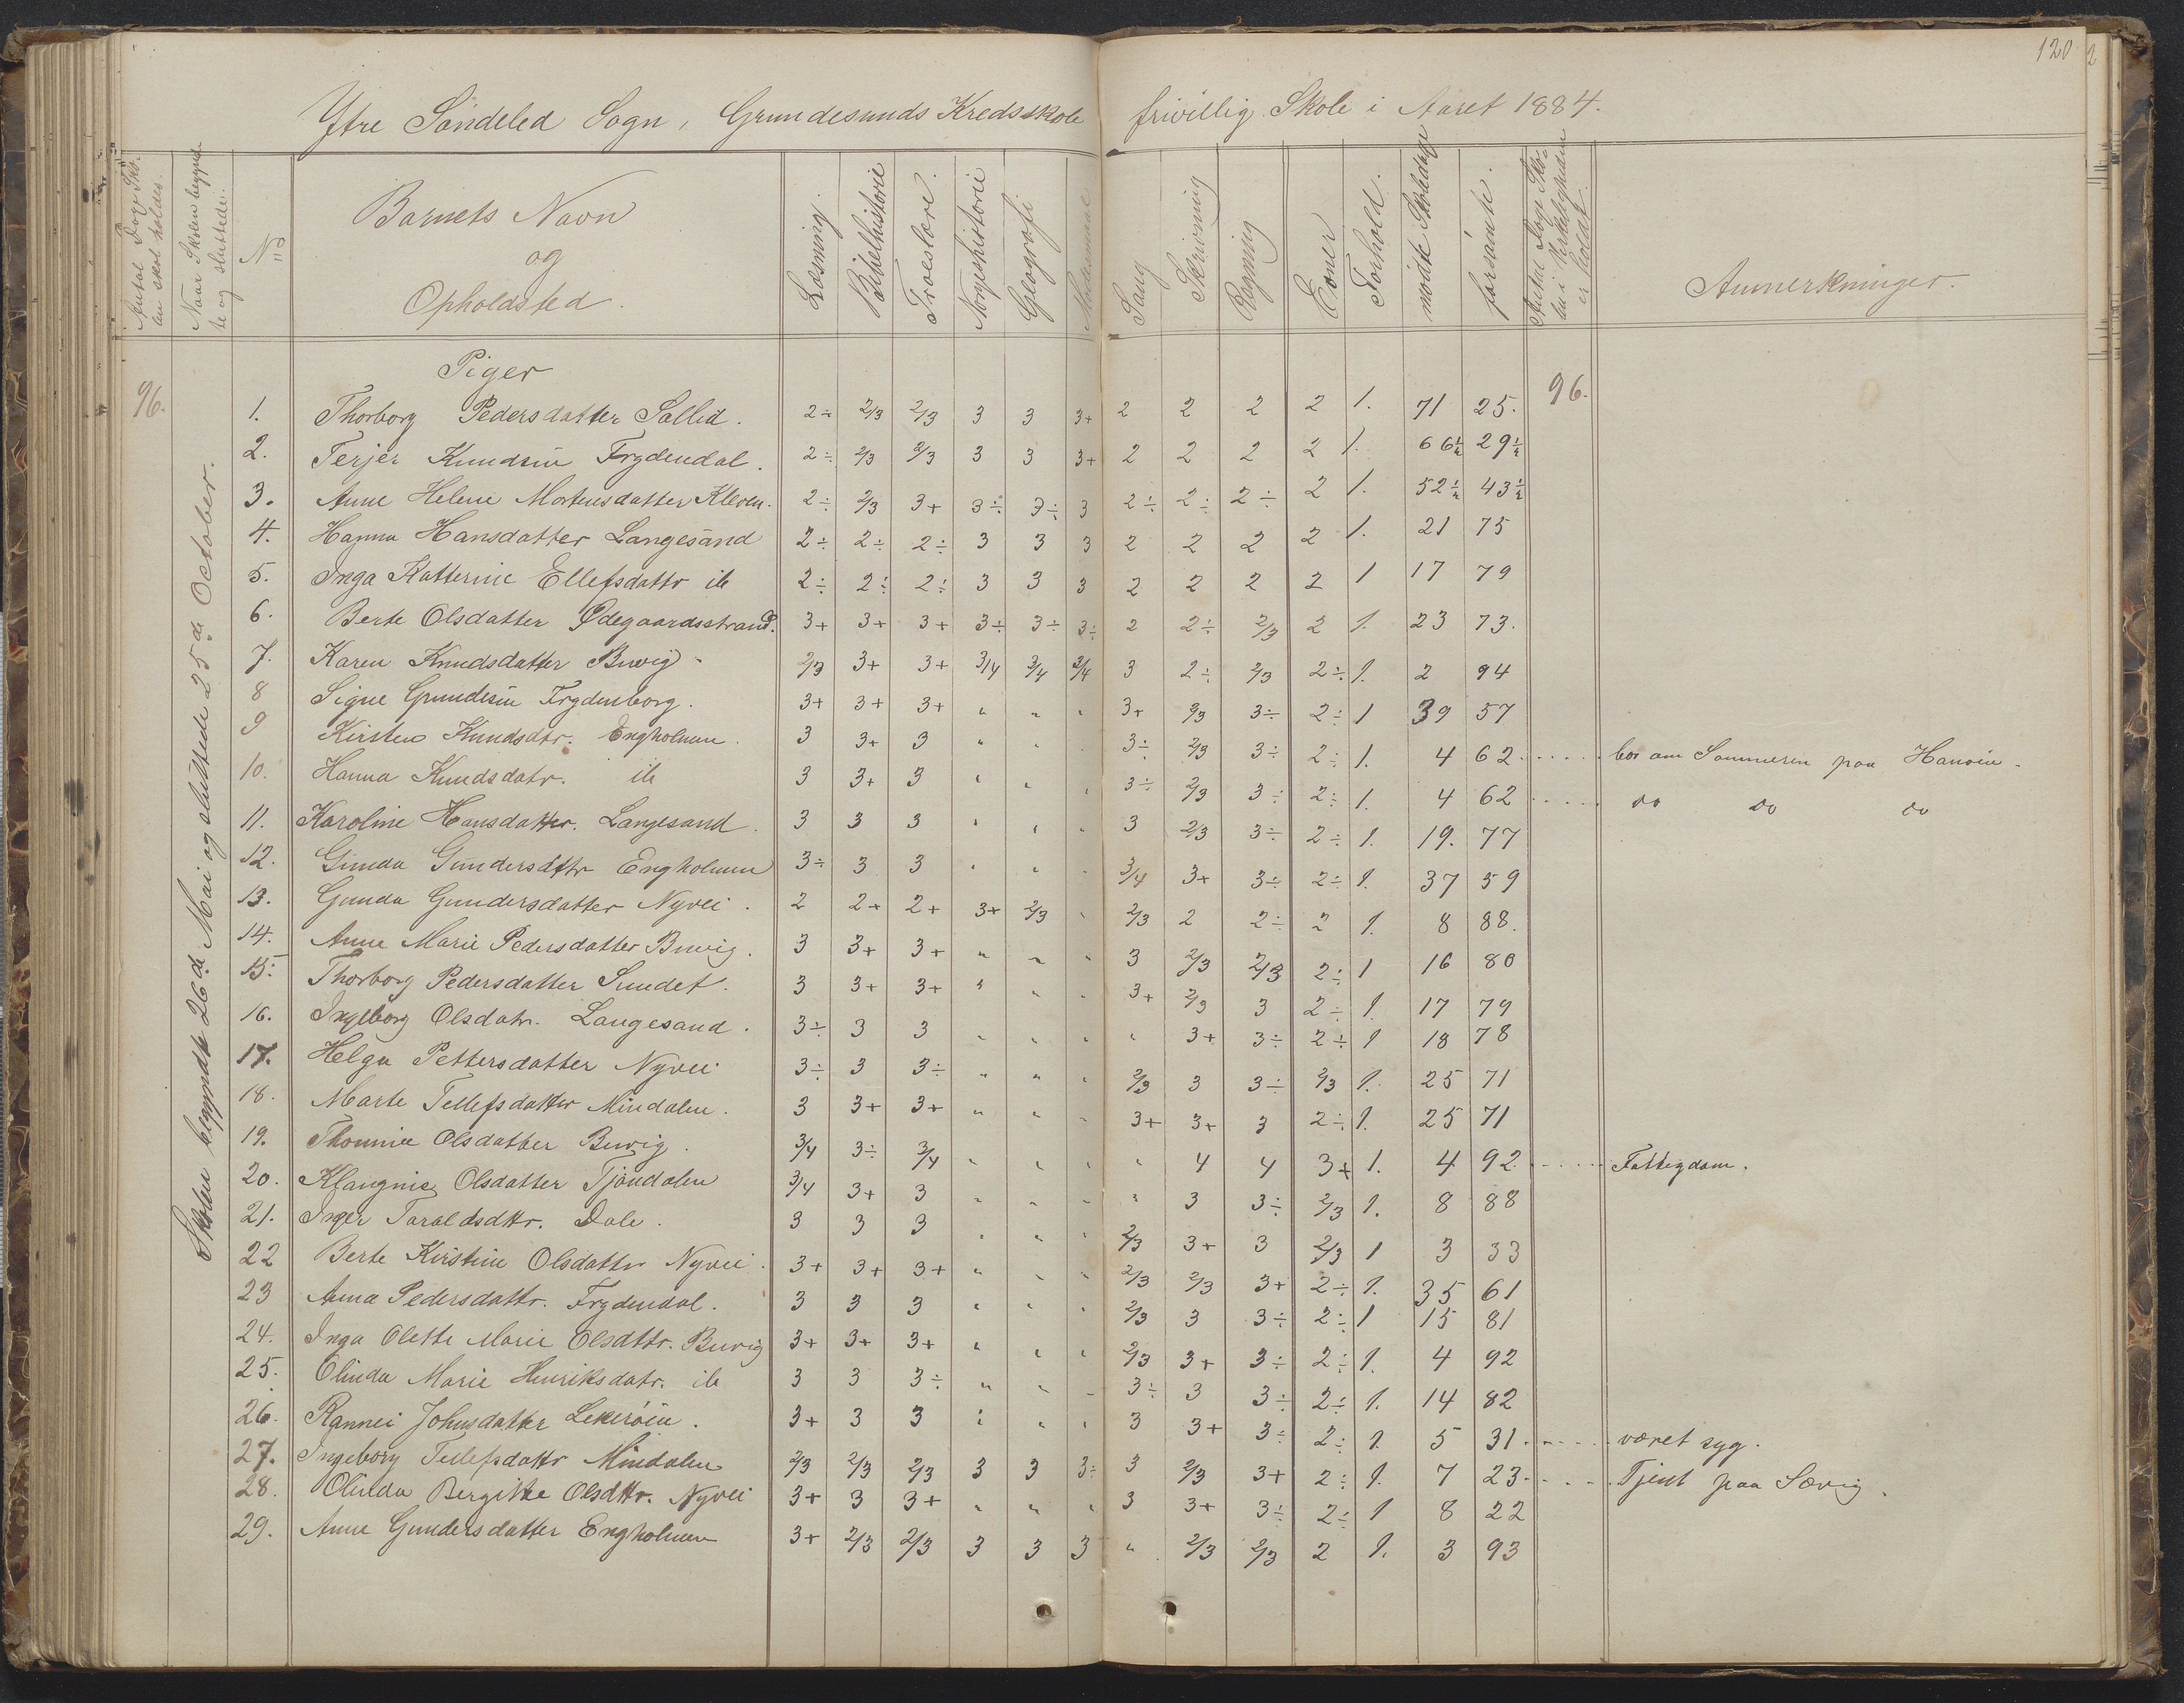 120
Ytre Söndeled Sogn, Grundesunds Kredsskole frivillig Skole i Aaret 1884.
Antal Dage Skolen skal holdes. | Naar Skolen begyndte og sluttede. | No | Barnets Navn og Opholdsted. | Læsning. | Bibelhistorie | Troeslære. | Norgeshistorie | Geografi | Modersmaal | Sang | Skrivning | Regning | Evner | Forhold. | mødte Skoledage | forsømte. | Antal Dage Skolen i Virkeligheden er holdt. | Anmerkninger.
Skolen begyndte 26de Mai og sluttede 25de October.
Piger
96. | 1. Thorborg Pedersdatter Sallid. 2÷ 2/3 2/3 3 3 3+ 2 2 2 2 1. 71 25. 96.
2. Terjer Knudsin Frydendal. 2÷ 2/3 2/3 3 3 3+ 2 2 2 2 1. 66½ 29½
3. Anne Helene Mortensdatter Kleven. 2÷ 2/3 3+ 3÷ 3÷ 3 2÷ 2÷ 2÷ 2 1. 52½ 43½
4. Hanna Hansdatter Langesand 2÷ 2÷ 2÷ 3 3 3 2 2 2 2 1. 21 75
5. Inga Katterine Ellefsdattr ib 2÷ 2÷ 2÷ 3 3 3 2 2 2 2 1 17 79
6. Berte Olsdatter Ødegaardsstrand. 3+ 3+ 3+ 3÷ 3÷ 3÷ 2 2÷ 2/3 2 1. 23 73.
7. Karen Knudsdatter Buvig 2/3 3+ 3+ 3/4 3/4 3/4 3 2÷ 2/3 2÷ 1. 2 94
8 Signe Gundesin Frydensborg. 3+ 3+ 3+ " " " 3+ 2/3 3÷ 2÷ 1 39 57
9 Kirsten Knudsdtr. Engholmen. 3 3+ 3 " " " 3÷ 2/3 3÷ 2÷ 1. 4 62 ..... bor om Sommeren paa Hansøen.
10. Hanna Knudsdatr. ib 3 3+ 3 " " " 3÷ 2/3 3÷ 2÷ 1. 4 62 ..... do do do
11. Karoline Hansdatter. Langesand. 3 3 3 " " " 3 2/3 3÷ 2÷ 1. 19. 77
12. Gunda Gundersdttr Engholmen 3÷ 3 3 " " " 3/4 3+ 3÷ 2÷ 1. 37 59
13. Gunda Gundersdatter Nyvei. 2 2+ 2+ 3+ 2/3 " 2/3 2 2÷ 2 1. 8 88.
14. Anne Marie Pedersdatter Buvig. 3 3+ 3+ " " " 3 2/3 2/3 2÷ 1 16 80
15. Thorborg Pedersdatter Sundet. 3 3+ 3+ " " " 3+ 2/3 3 2÷ 1. 17 79
16. Ingeborg Olsdatr. Langesand. 3÷ 3 3 " " " " 3+ 3÷ 2÷ 1 18 78
17. Helga Pettersdatter Nyvei 3÷ 3 3÷ " " " 2/3 3 3÷ 2/3 1. 25 71
18. Marte Tellefsdatter Mindalen. 3 3+ 3+ " " " 3+ 3+ 3 2÷ 1. 25 71
19. Thomine Olsdatter Buvig. 3/4 3÷ 3/4 " " " " 4 4 3+ 1. 4 92 ..... Fattigdom.
20. Olsdatter Tjöndalen 3/4 3+ 3 " " " " 3 3÷ 2/3 1. 8 88
21. Inger Taraldsdttr. Dale. 3 3 3 " " " 2/3 3+ 3 2/3 1 3 33
22 Berte Kirstine Olsdatter Nyvei. 3+ 3+ 3+ " " " 2/3 2/3 3+ 2÷ 1. 35 61
23 Anna Pedersdattr. Frydendal. 3 3 3 " " " 2/3 3 3÷ 2÷ 1 15 81
24. Inga Olette Marie Olsdttr. Buvig 3+ 3+ 3+ " " " 2/3 3+ 3÷ 2÷ 1. 4 92
25. Olinda Marie Henriksdatr. ib 3 3 3÷ " " " 3÷ 3 3÷ 2÷ 1. 14 82
26. Rannei Johnsdatter Lekerøen. 3+ 3 3 " " " 3 3+ 3÷ 2÷ 1. 5 31 ..... været syg.
27. Ingeborg Tellefsdattr Mindalen 2/3 2/3 2/3 3 3 3÷ 3 2/3 3+ 2÷ 1. 7 23 ..... Tjent paa Sævig.
28. Olinda Bergitte Olsdttr. Nyvei 3+ 3 3+ " " " 3 3+ 3÷ 2÷ 1 8 22
29. Anne Gundersdatter Engholmen 3+ 2/3 2/3 3 3 3 " 2/3 2/3 2 1. 3 93